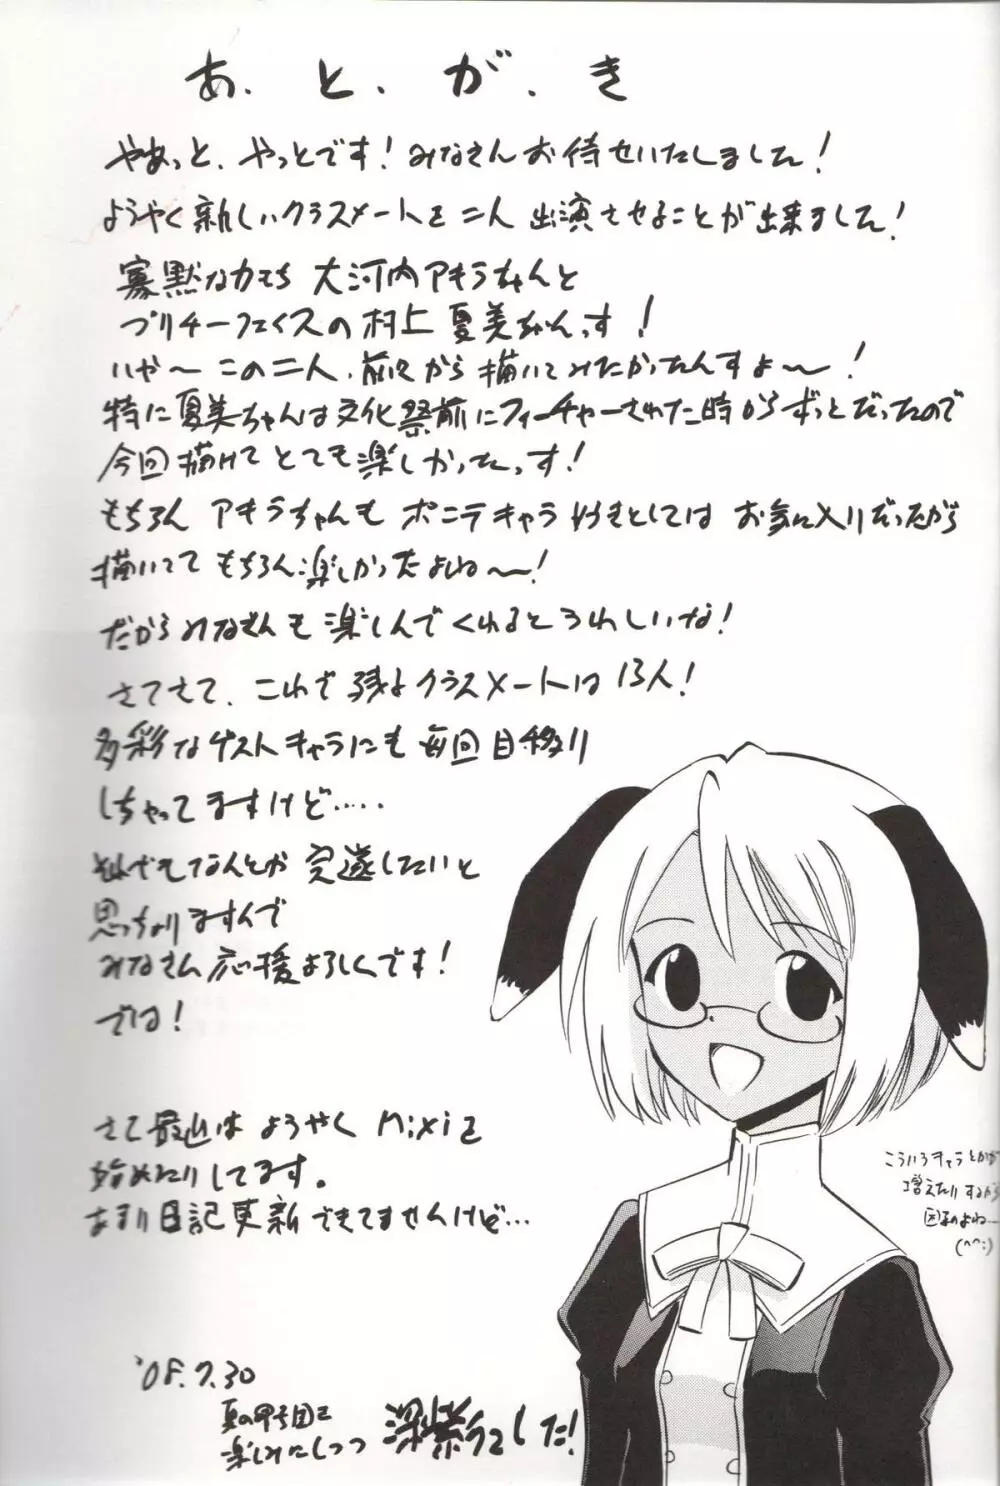 あ、と、が、き
やあっと、やっとです!みなさんお待せいたしました!
ようやく新しいクラスメートを二人 出演させることが出来ました!
寡黙な力もち 大河内アキラちゃんと
プリチーフェイスの村上夏美ちゃんっす!
いや〜この二人、前々から描いてみたかったんすよ〜!
特に夏美ちゃんは文化祭前にフィーチャーされた時からずっとだったので
今回描けてとても楽しかったっす!
もちろん アキラちゃんも ポニテキャラ好きとしては お気に入りだったから
描いてて もちろん楽しかったよね〜!
だからみなさんも楽しんでくれるとうれしいな!
さてさて、これで残るクラスメートは13人!
多彩なゲストキャラにも毎回目移り
しちゃってますけど.....
それでもなんとか完遂したいと
思っちょりますんで
みなさん応援よろしくです!
では!
さて最近は ようやく mixiを
始めたりしてます。
あまり日記更新できてませんけど...
こういうキャラとかが
増えたりするから
困るのよね...
(^^;)
'08.7.30
夏の甲子園を
楽しみにしつつ 深紫でした!